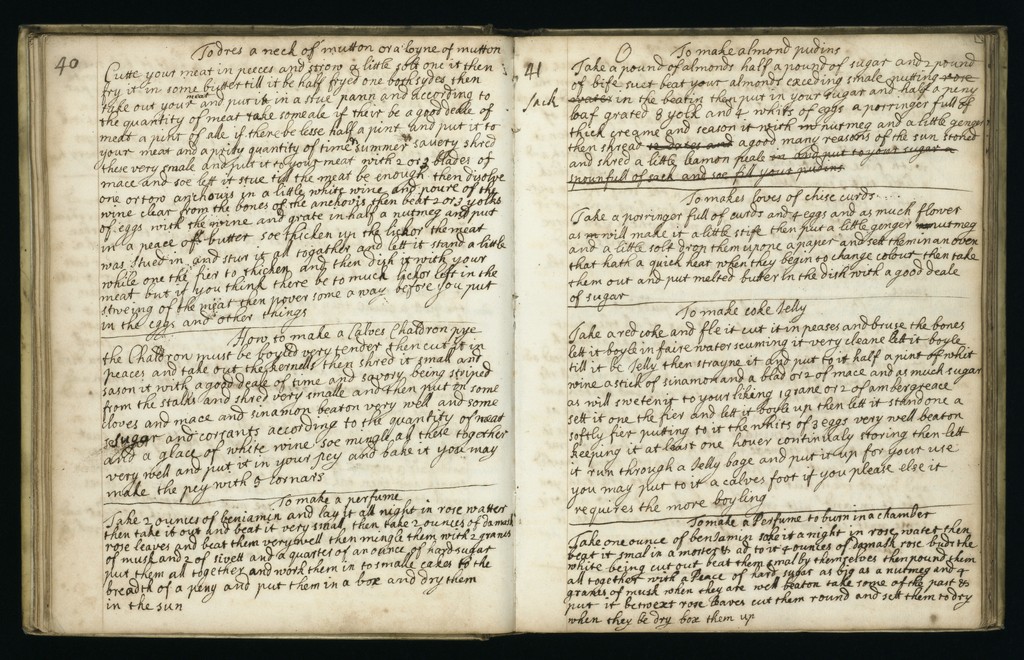 40
To dres a neck of mutton or a loyne of mutton
Cutte your meat in peeces and strow a little solt one it then
fry it in some butter till it be half fryed one both sydes then
take out your meat and put it in a stue pann and according to
the quantity of meat take some ale if their be a good deale of
meat a pint of ale if there be lesse half a pint and put it to
your meat and a prity quantity of time summer savery shred
these very smale and put it to your meat with 2 or 3 blades of
mace and soe lett it stue till the meat be enough then disolve
one or two anchovis in a little white wine and poure of the
wine clear from the bones of the anchovis then beat 2 or 3 yolks
of eggs with the wine and grate in half a nutmeg and put
in a peace off butter soe thicken up the lickor the meat
was stued in and sturr it all together and lett it stand a little
while one the fier to thicken and then dish it with your
meat but if you think there be to much lickor left in the
stweing of the meat then power some a way before you put
in the eggs and other things
How to make a Calves Chaldron pye
the Chaldron must be boyled very tender then cutt it in
peaces and take out the kernells then shred it small and
sason it with a good deale of time and savory being striped
from the stalks and shred very smalle and then put on some
cloves and mace and sinamon beaton very well and some
sugar and corsants according to the quantity of meat
and a glace of white wine soe mingle all these together
very well and put it in your pey and bake it yose may
make the pey with 6 cornars
To make a perfume
Take 2 ounces of benjamin and lay it all night in rose watter
then take it out and beat it very smal, then take 2 ounces of damask
rose leaves and beat them very well then mungle them with 2 grans
of musk and 2 of sivett and a quarter of an ounce of hard sugar
put them all together and work them in to smalle cakes to the
breadth of a peny and put them in a box and dry them
in the sun
41
To make almond pudins
Take a pound of almonds half a pound of sugar and 2 pound
of bife suet beat your almonds exceding smale putting rose
water in the beatin then put in your sugar and half a peny
Sack
loaf grated 8 yolk and 4 whits of eggs a porringer full of
thick creame and season it with nutmeg and a little genger
then shread 12 dates and a good many reasons of the sun stoned
and shred a little liamon peale in and put to your sugar a
spounfull of sack and soe fill your pudins
To makes loves of chise curds
Take a porringor full of curds and 4 eggs and as much flower
as will make it a little stife then put a little gonger nutmeg
and a little solt drop them upone a paper and sett them in an oven
that hath a quick heat when they begin to change colour then take
them out and put melted butter in the dish with a good deale
of sugar
To make coke Jelly
Take a red coke and fle it cut it in peases and bruse the bones
lett it boyle in faire water scuming it very cleane lett it boyle
till it be Jelly then strayne it and put to it half a pint of whit
wine a stick of sinamon and a blad or 2 of mace and as much sugar
as will sweten it to your liking 1 grane or 2 of ambergreace
sett it one the fier and lett it boyle up then lett it stand one a
softly fier putting to it the whits of 3 eggs very well beaton
keeping it at least one hover continualy storing then lett
it run through a Jelly bage and put it up for your use
you may put to it a calves foot if you please else it
requires the more boyling
To make a Perfume to burn in a chamber
Take one ounce of benjamin soke it a night in rose watet then
beat it smal in a morter & ad to it 4 ounces of damask rose buds the
white being cut out beat them smal by themselves then pound them
all together with a Peace of hard sugar as big as a nutmeg and 4
granes of musk when they are well beaton take some of the past &
put it betwext rose leaves cut them round and sett them to dry
when they be dry box them up